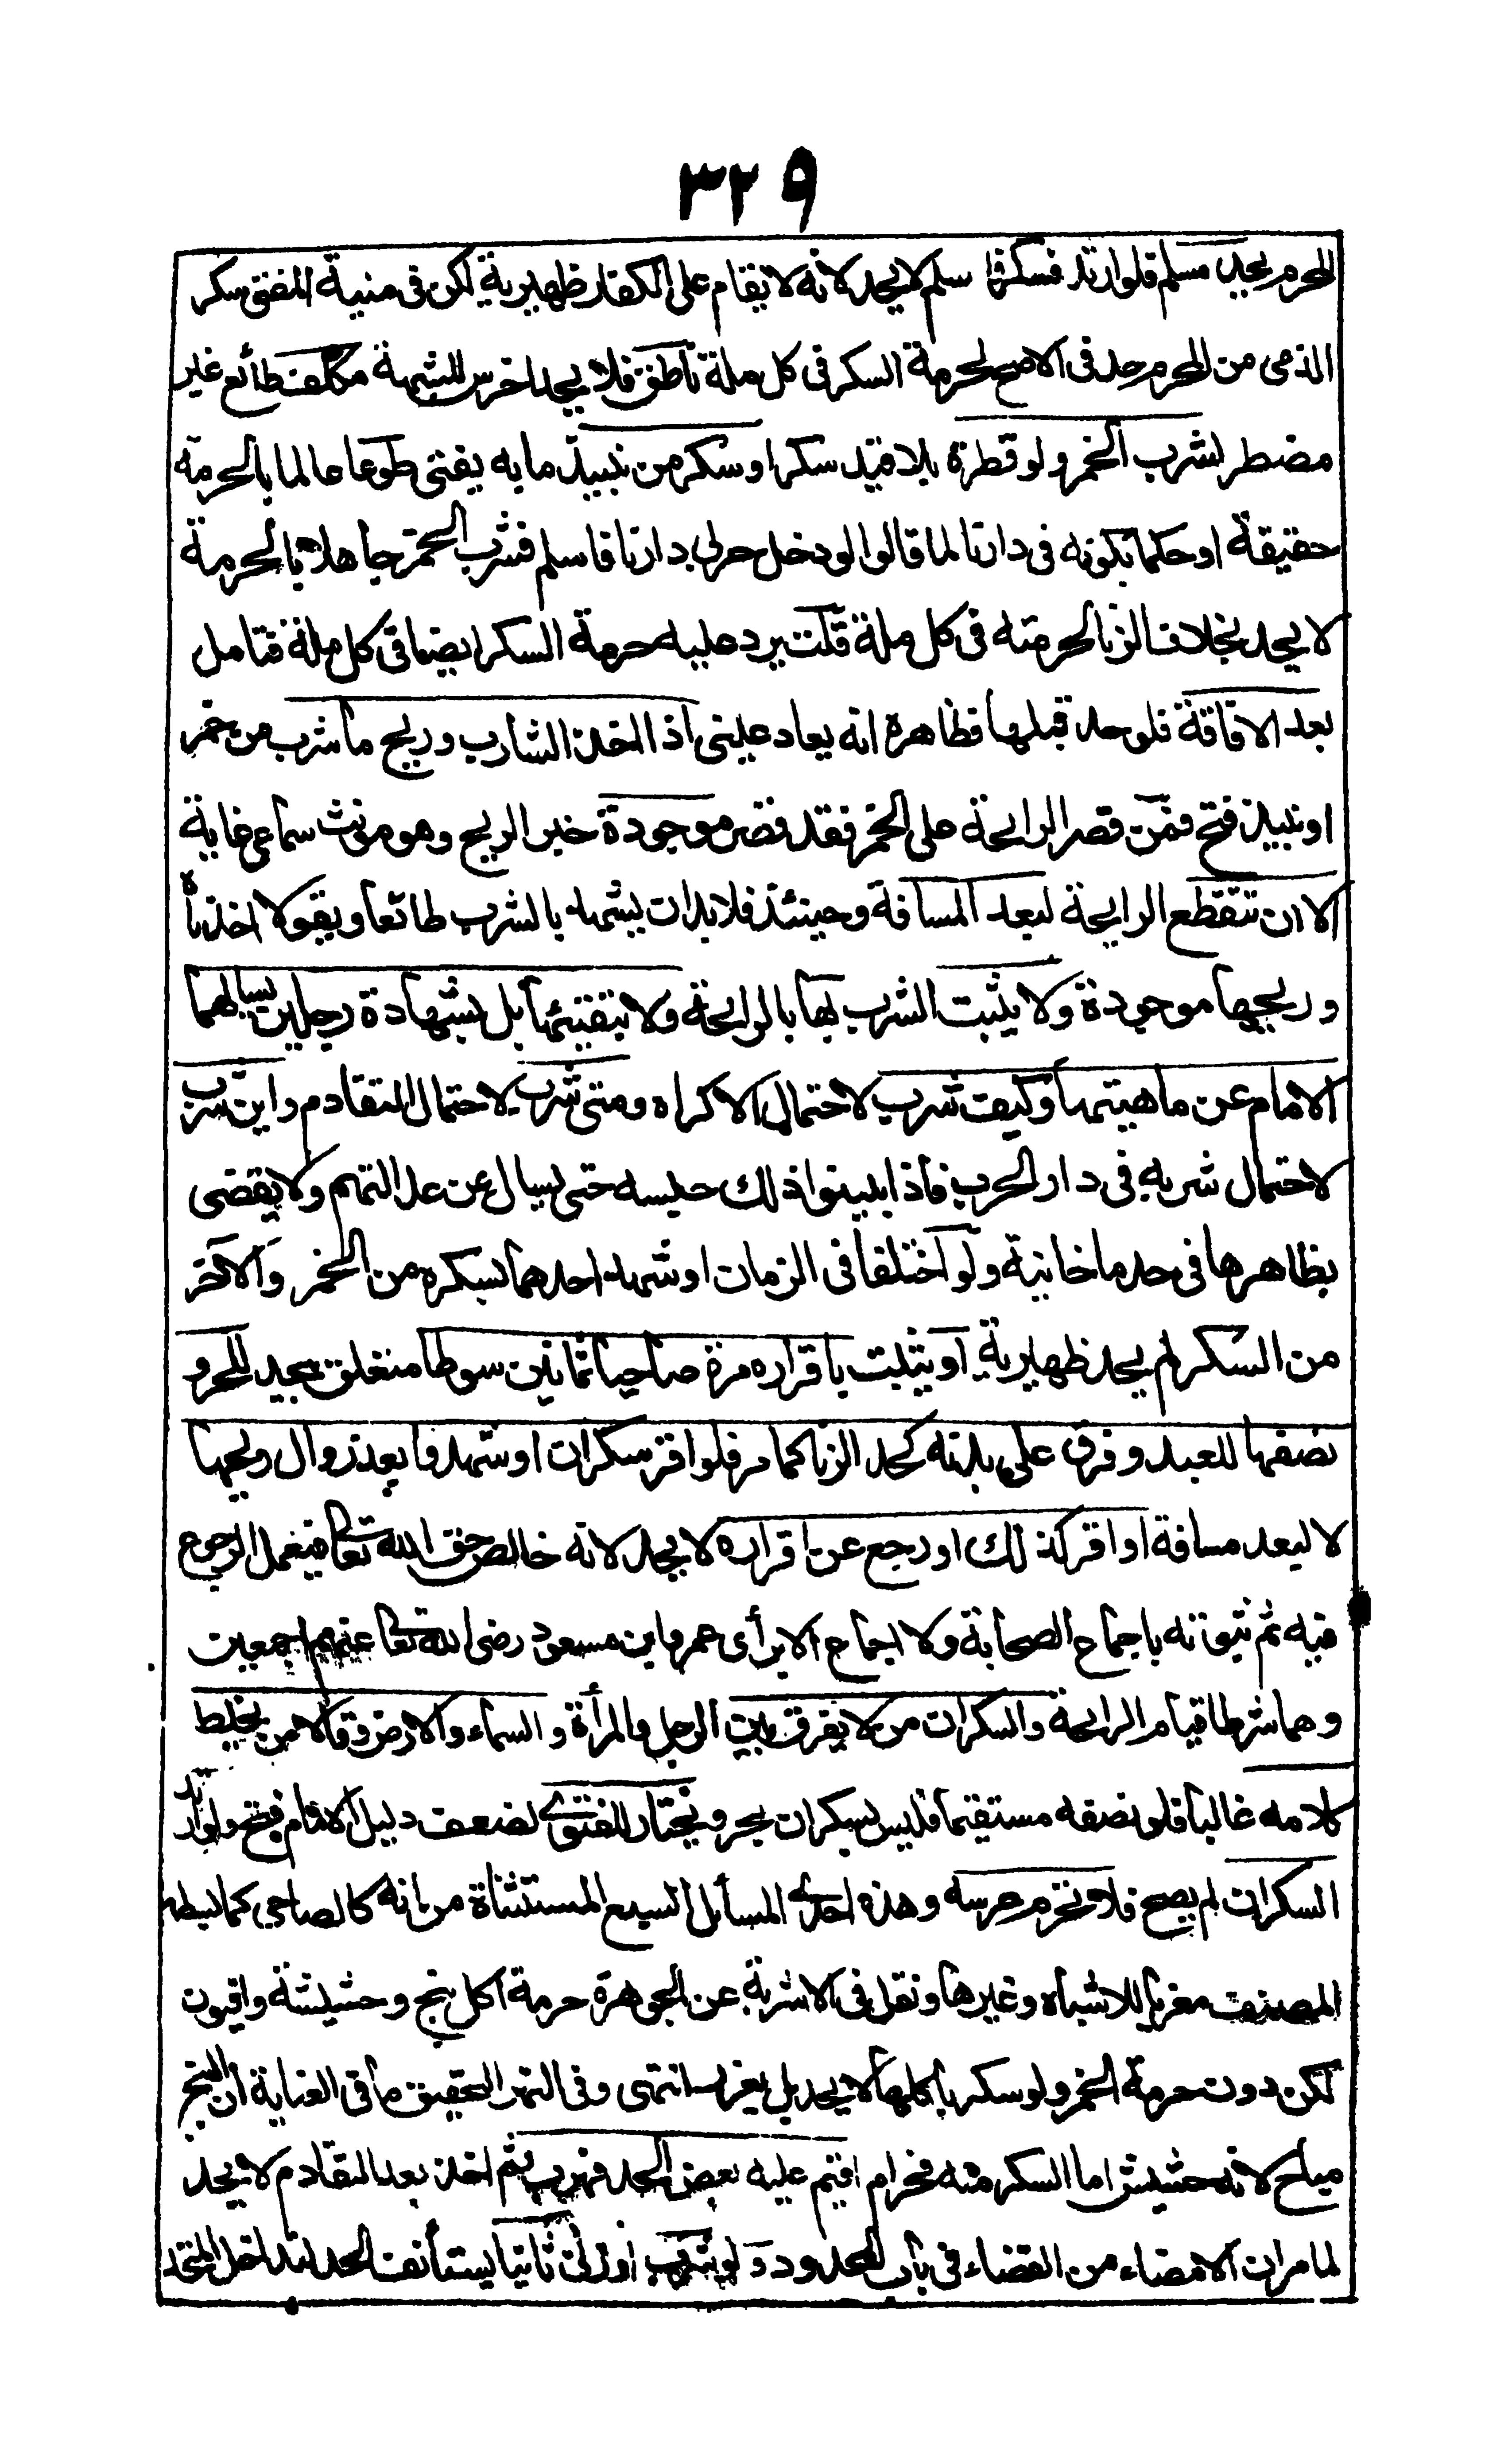 ٣٢٩
المحرم يحد مسلم فلو ارتد فسكر فاسلم لا يحد لانه لا يقام على الكفار ظهيرية لكن فى منية المفتى سكر
الذمى من المحرم حد فى الاصح لحرمة السكر فى كل ملة ناطق فلا يحد اخرس للشبهة مكلف طائع غير
مضطر لشرب الخمر ولو قطرة بلا قيد سكر او سكر من نبيذ ما به يفتى طوعا عالما بالحرمة
حقيقة او حكما بكونه فى دارنا لما قالوا لو دخل حربى دارنا فاسلم فشرب الخمر جاهلا بالحرمة
لا يحد بخلاف الزنا لحرمته فى كل ملة قلت يرد عليه حرمة السكر ايضا فى كل ملة فتامل
بعد الافاقة فلو حد قبلها فظاهره انه يعاد عينى اذ اخذ الشارب وريح ما شرب من خمر
او نبيذ فتح فمن قصر الرايحة على الخمر فقد قصر موجودة خبر الريح وهو مونث سماعى غاية
الا ان تنقطع الرايحة لبعد المسافة وحينئذ فلا بد ان يشهد بالشرب طائعا ويقولا اخذناه
وريحها موجودة ولا يثبت الشرب بها بالرايحة ولا بتقيئها بل بشهادة رجلين يسالهما
الامام عن ماهيتها وكيف شرب لاحتمال الاكراه ومتى شرب لاحتمال التقادم واين شرب
لاحتمال شربه فى دار الحرب فاذا بينوا ذلك حبسه حتى يسال عن عدالتهم ولا يقضى
بظاهرها فى حد ما خانية ولو اختلفا فى الزمان او شهد احدهما بسكره من الخمر والاخر
من السكر لم يحد ظهيرية او يثبت باقراره مرة صاحيا ثمانين سوطا متعلق بيحد للحر و
نصفها للعبد وفرق على بدنه كحد الزنا كما مر فلو اقر سكران او شهدوا بعد زوال ريحها
لا لبعد مسافة او اقر كذلك او رجع عن اقراره لا يحد لانه خالص حق الله تعا فيعمل الرجوع
فيه ثم ثبوته باجماع الصحابة ولا اجماع الا برأى عمر وابن مسعود رضى الله تعا عنهم اجمعين
وهما شرطا قيام الرايحة والسكران من لا يفرق بين الرجل والمرأة و السماء والارض وقالا من يخلط
كلامه غالبا فلو نصفه مستقيما فليس بسكران بحر ويختار للفتوى لضعف دليل الامام فتح ولو ارتد
السكران لم يصح فلا تحرم عرسه وهذه احدى المسائل السبع المستثناة من انه كالصاحى كما بسطه
المصنف معزيا للاشباه وغيرها ونقل فى الاشربة عن الجوهرة حرمة اكل بنج وحشيشة وافيون
لكن دون حرمة الخمر ولو سكر باكلها لا يحد بل يعزر انتهى وفى النهر التحقيق ما فى العناية ان البنج
مباح لانه حشيش اما السكر منه فحرام اقيم عليه بعض الحد فهرب ثم اخذ بعد التقادم لا يحد
لما مر ان الامضاء من القضاء فى باب الحدود ولو شرب او زنى ثانيا يستأنف الحد لتداخل المتحد